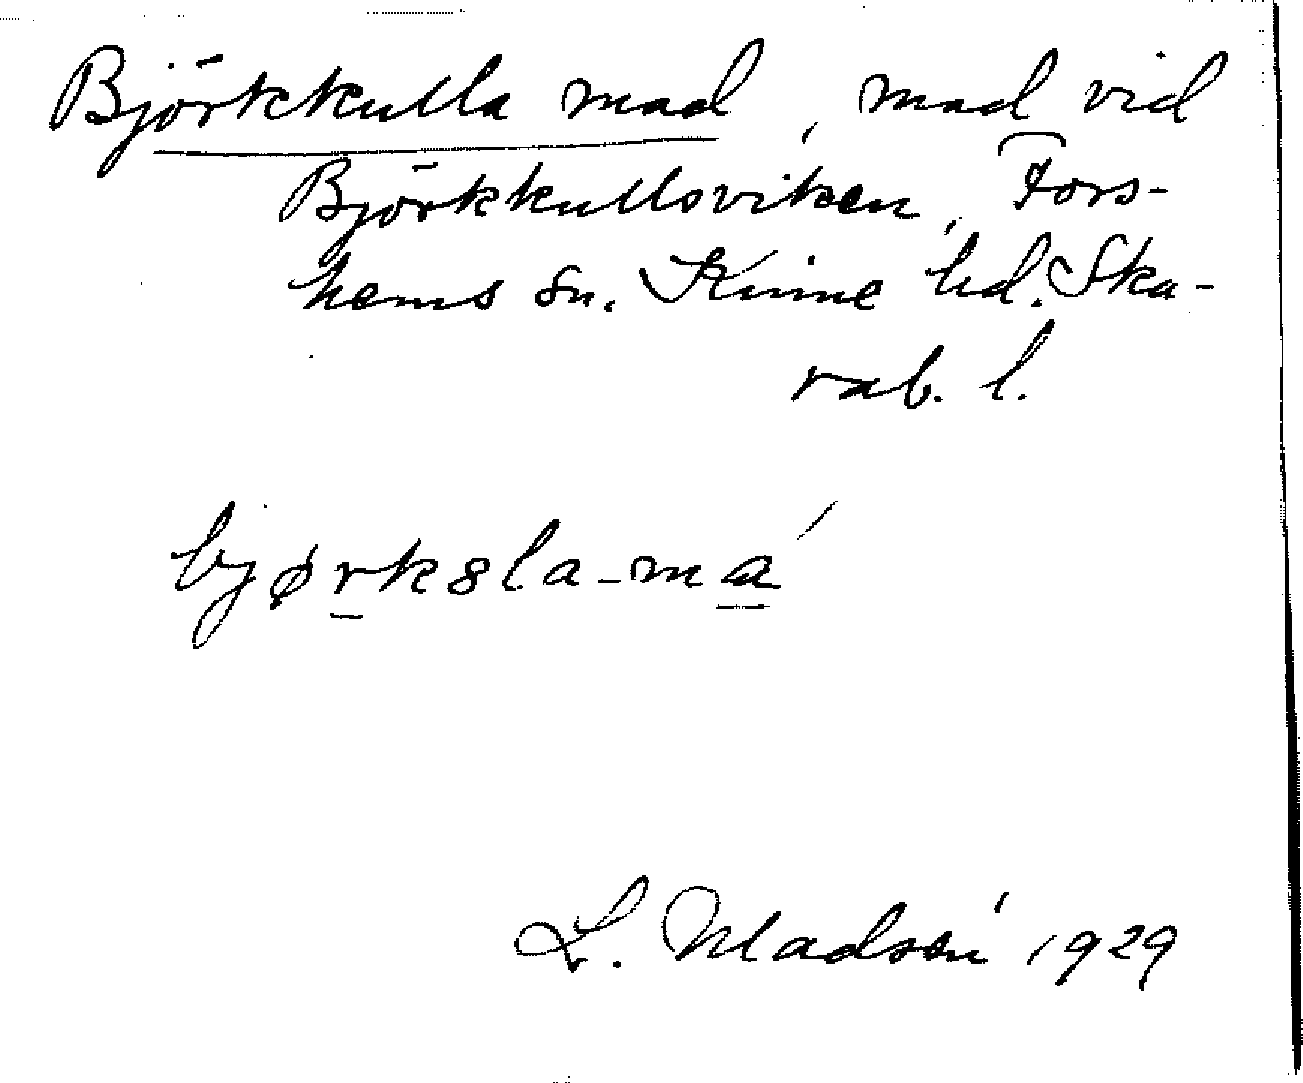 Björkkulla mad, mad vid
Björkkullsviken, Fors-
hems sn. Kinne hd. Ska-
rab. l.
bjørksla-má
L. Madsén 1929